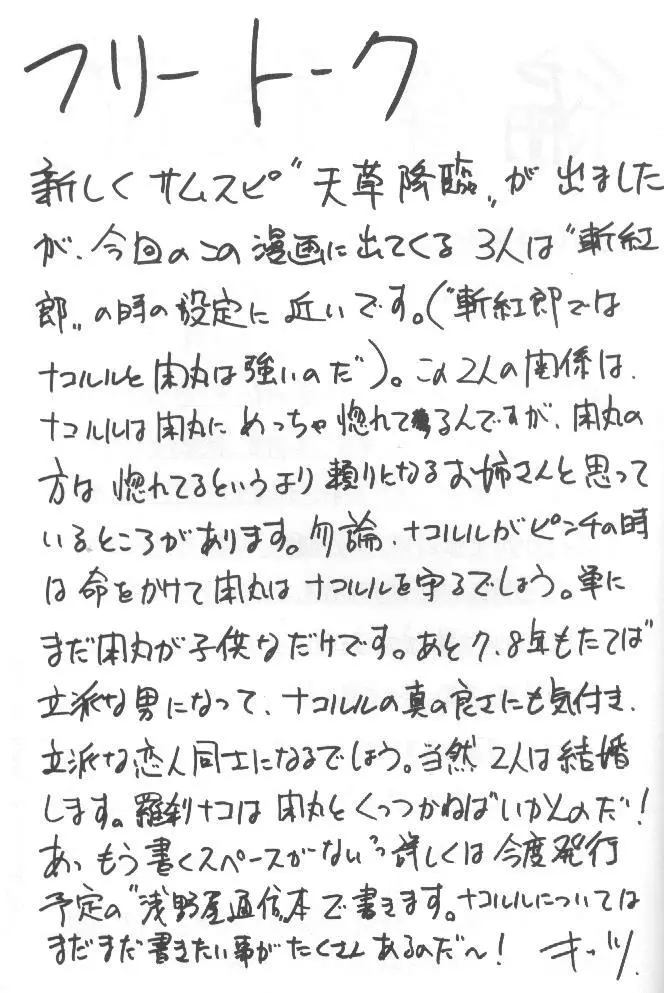 フリートーク
新しくサムスピ〝天草降臨〟が出ました
が、今回のこの漫画に出てくる3人は〝斬紅
郎〟の時の設定に近いです。(〝斬紅郎では
ナコルルと閑丸は強いのだ)。この2人の関係は、
ナコルルは閑丸にめっちゃ惚れてるんですが、閑丸の
方は惚れてるというより頼りになるお姉さんと思って
いるところがあります。勿論、ナコルルがピンチの時
は命をかけて閑丸はナコルルを守るでしょう。単に
まだ閑丸が子供なだけです。あと7、8年もたてば
立派な男になって、ナコルルの真の良さにも気付き、
立派な恋人同士になるでしょう。当然2人は結婚
します。羅刹ナコは閑丸とくっつかねばいかんのだ!
あっもう書くスペースがない〟詳しくは今度発行
予定の〝浅野屋通信〟本で書きます。ナコルルについては
まだまだ書きたい事がたくさんあるのだ〜!